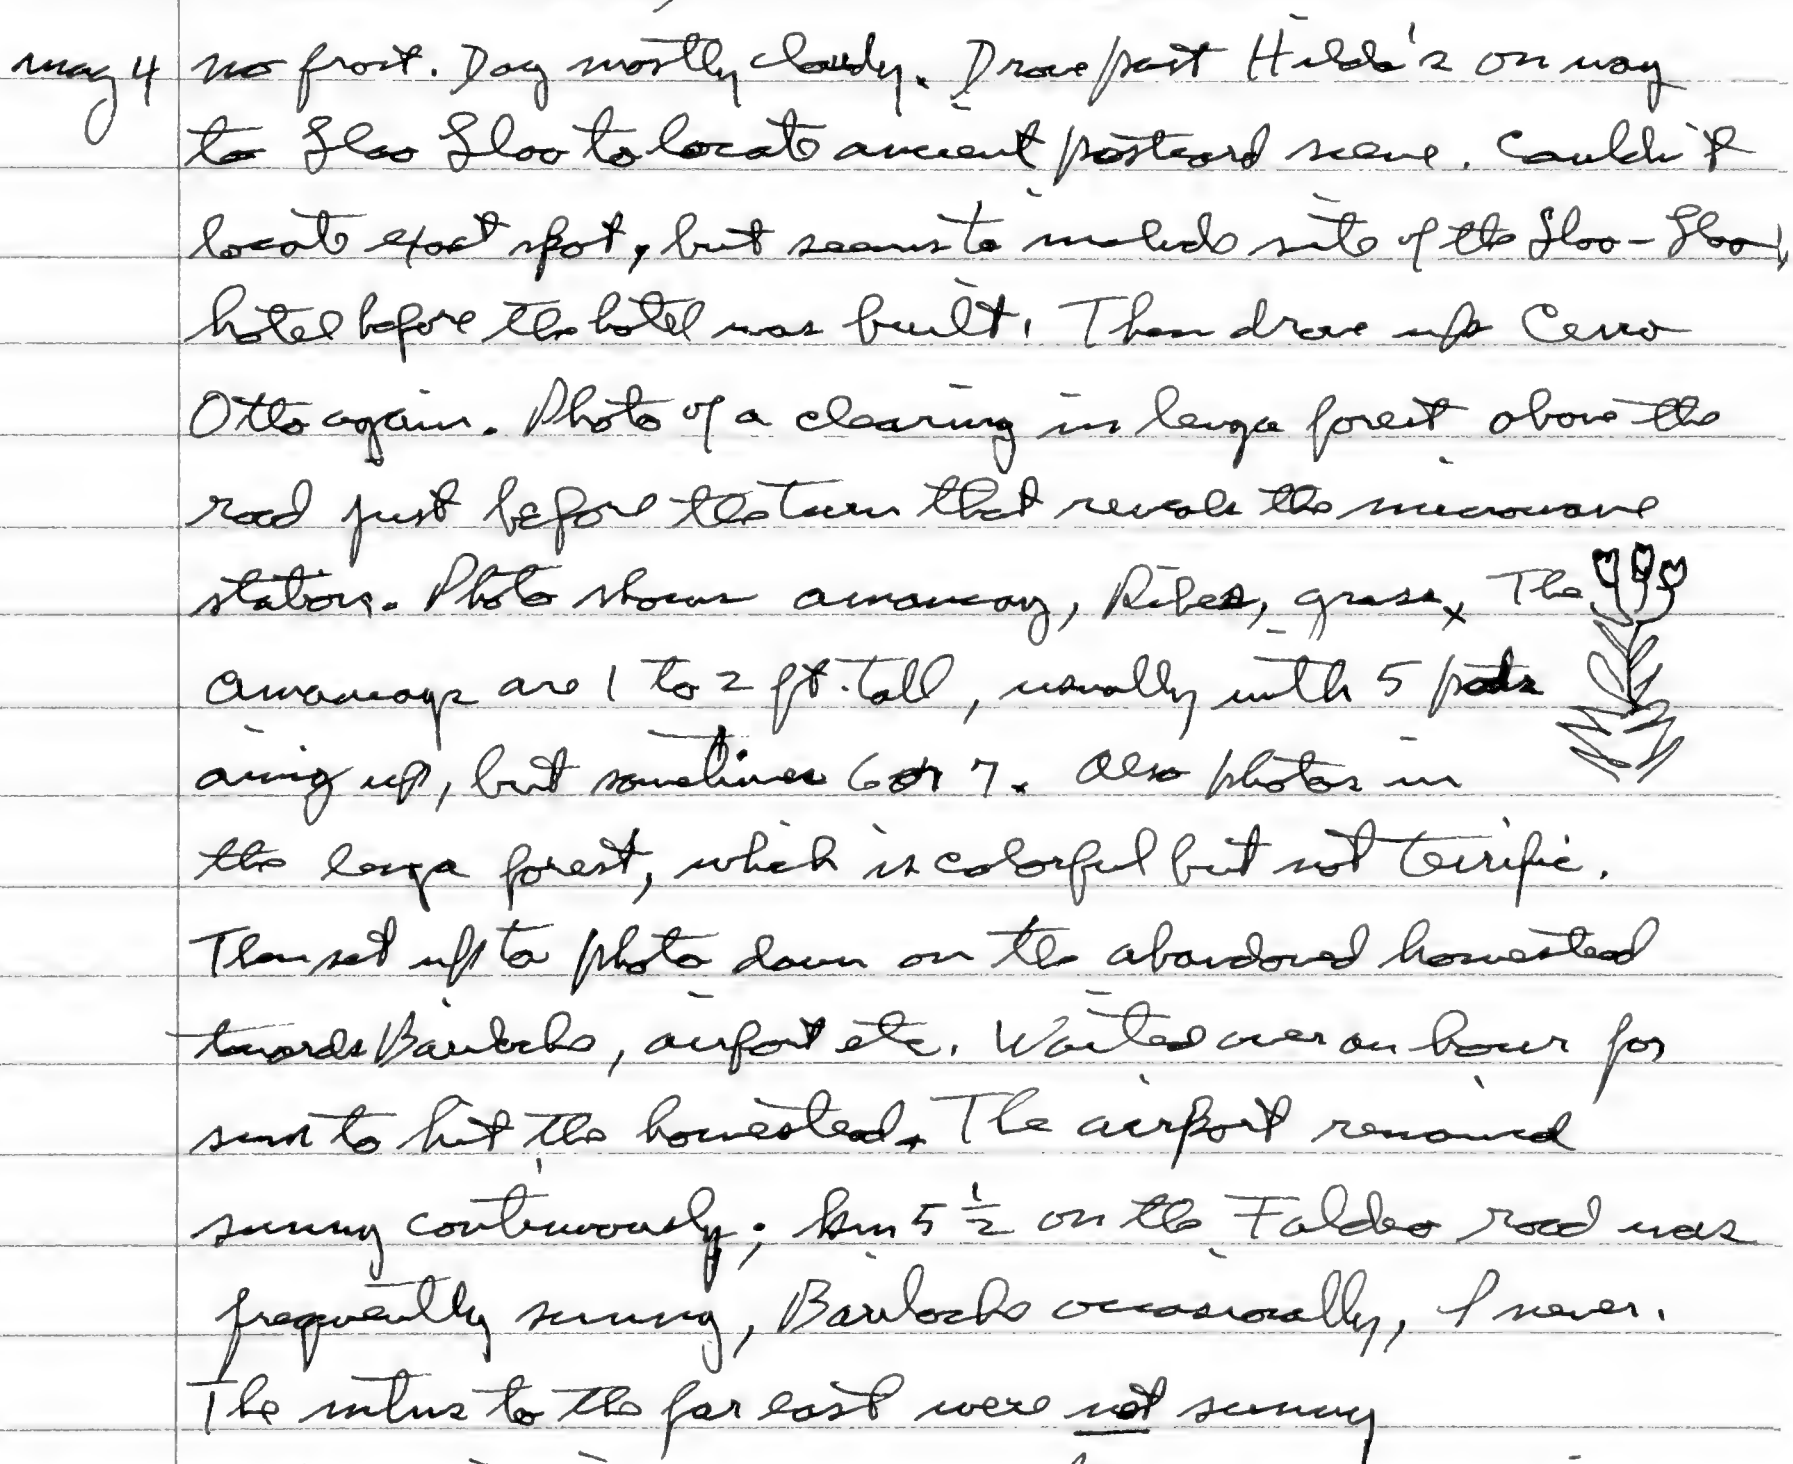 May 4 no frost. Day mostly cloudy. Drove past Hilda's on way
to Llao Llao to locate ancient postcard scene. Couldn't
locate exact spot, but seems to include site of the Llao-Llao
hotel before the hotel was built. Then drove up Cerro
Otto again. Photo of a clearing in lenga forest above the
road just before the turn that reveals the microwave
station. Photo shows amancay, Ribes, grass. The
amancays are 1 to 2 ft. tall, usually with 5 pods
aiming up, but sometimes 6 or 7. Also photos in
the lenga forest, which is colorful but not terrific.
Then set up to photo down on the abandoned homestead
towards Bariloche, airport etc. Waited over an hour for
sun to hit the homestead. The airport remained
sunny continuously; km 5 1/2 on the Faldeo road was
frequently sunny, Bariloche occasionally, I never.
The mtns to the far east were not sunny